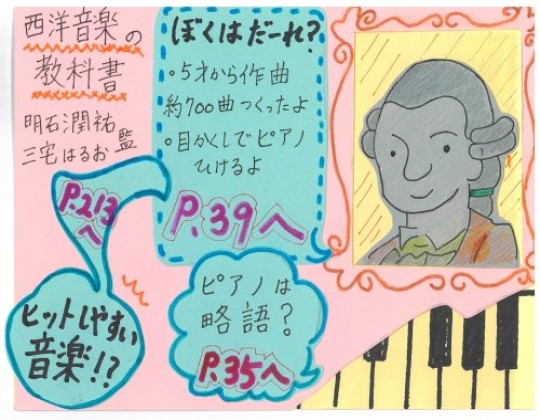 西洋音楽の
教科書
明石潤祐
三宅はるお 監
P.213
へ
ヒットしやすい
音楽!?
ぼくはだーれ?
・5才から作曲
約700曲つくったよ
・目かくしでピアノ
ひけるよ
P.39へ
ピアノは
略語?
P.35へ